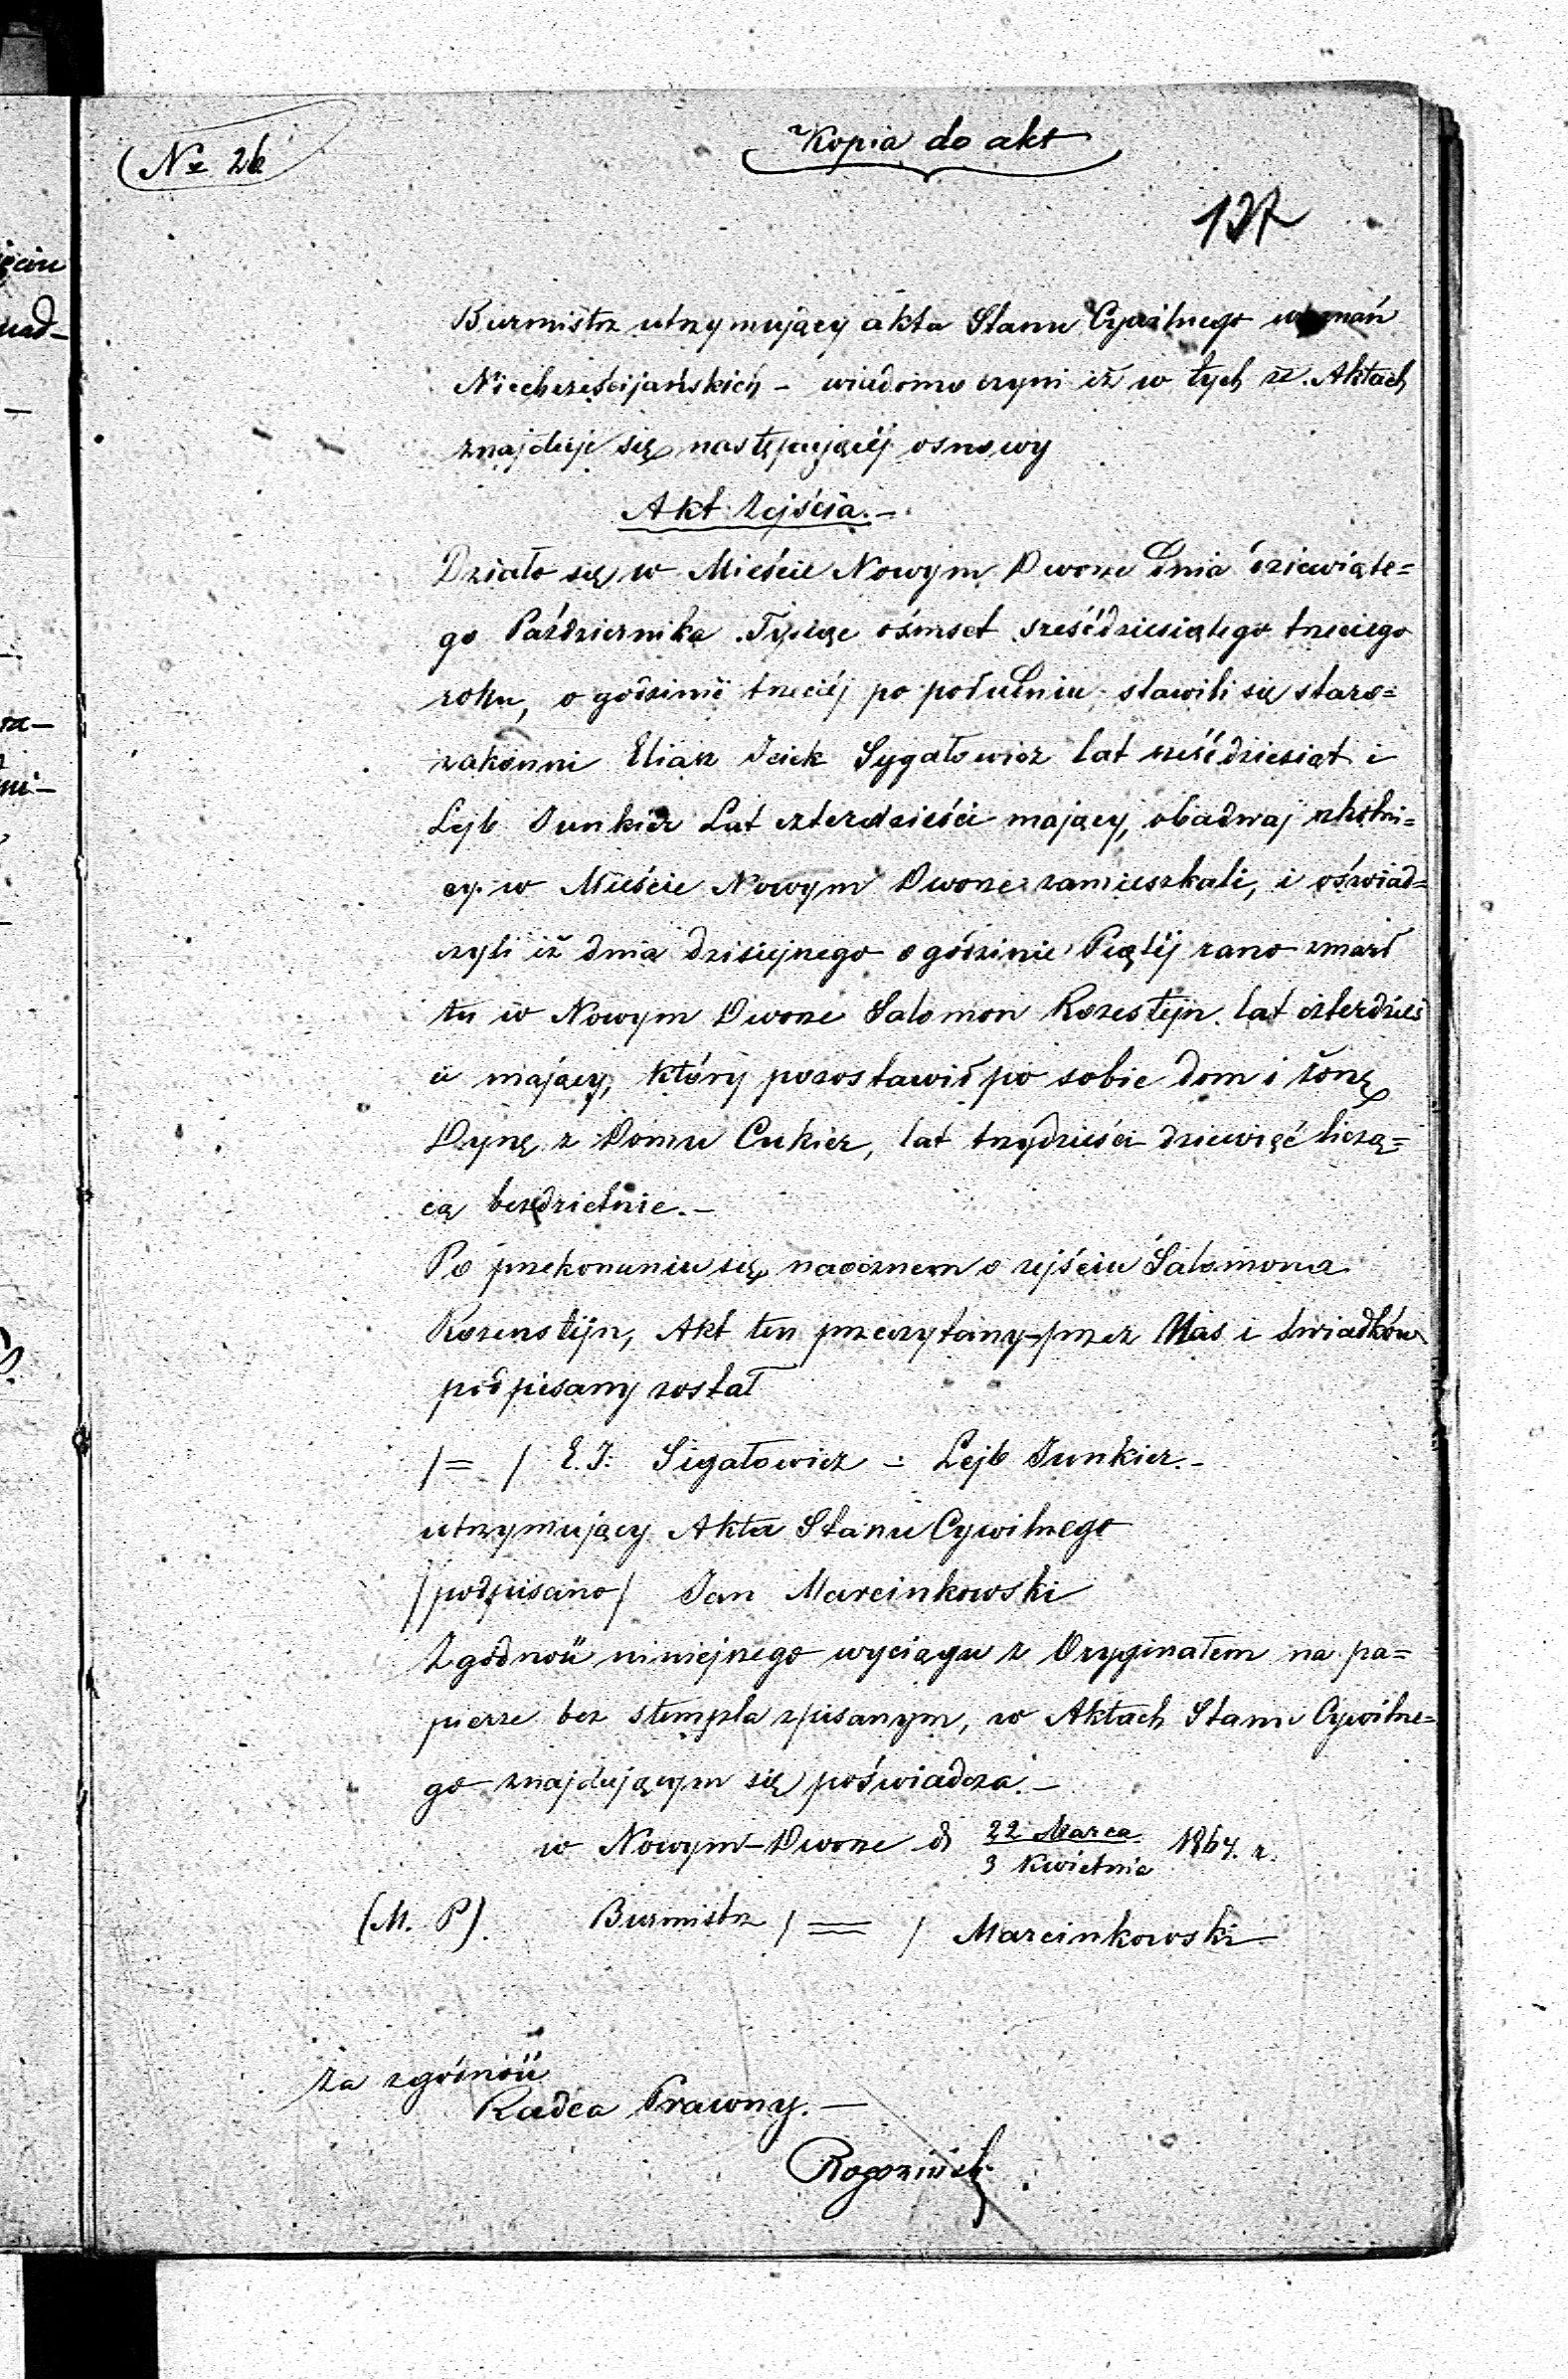 № 26
Kopia do akt
137
Burmistrz utrzymujący akta Stanu Cywilnego wyznań
Niechrześcijańskich – wiadomo czyni iż w tych że Aktach
znajduje się następującéj osnowy
Akt Zejścia.–
Działo się w Mieście Nowym Dworze Dnia dziewiąte=
go Października Tysiąc ośmset sześćdziesiątego trzeciego
roku, o godzinie trzeciéj po południu stawili się staro=
zakonni Eliasz Icick Sygałowicz lat sześćdziesiąt i
Lejb Junkier Lat czterdzieści mający, obadwaj szkolni=
cy w Mieście Nowym Dworze zamieszkali, i oświad=
czyli iż dnia dzisiejszego o godzinie Piątéj rano zmarł
tu w Nowym Dworze Salomon Rozestejn lat czterdzieś
ci mający, który pozostawił po sobie dom i żonę
Dynę z Domu Cukier, lat trzydzieści dziewięć liczą=
cą bezdzietnie.–
Po przekonaniu się naocznem o zejściu Salomona
Rozenstejn, Akt ten przeczytany przez Nas i świadków
podpisany został
/=/ E. I. Sigałowicz –: Lejb Junkier.–
utrzymujący Akta Stanu Cywilnego
/podpisano/ Jan Marcinkowski
Zgodność niniejszego wyciągu z Oryginałem na pa=
pierze bez stempla spisanym, w Aktach Stanu Cywilne=
go znajdującym się poświadcza.–
w Nowym–Dworze d 22 Marca / 3 Kwietnia 1864. r.
(M. P). Burmistrz /=/ Marcinkowski
Za zgodność
Radca Prawny.–